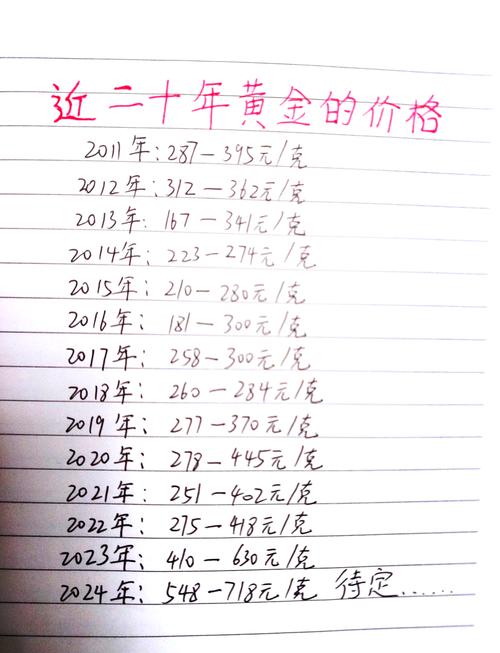 近二十年黄金的价格
2011年:287—395元/克
2012年:312—362元/克
2013年:167—341元/克
2014年:223—274元/克
2015年:210—280元/克
2016年:181—300元/克
2017年:258—300元/克
2018年:260—284元/克
2019年:277—370元/克
2020年:278—445元/克
2021年:251—402元/克
2022年:275—418元/克
2023年:410—630元/克
2024年:548—718元/克 待定......